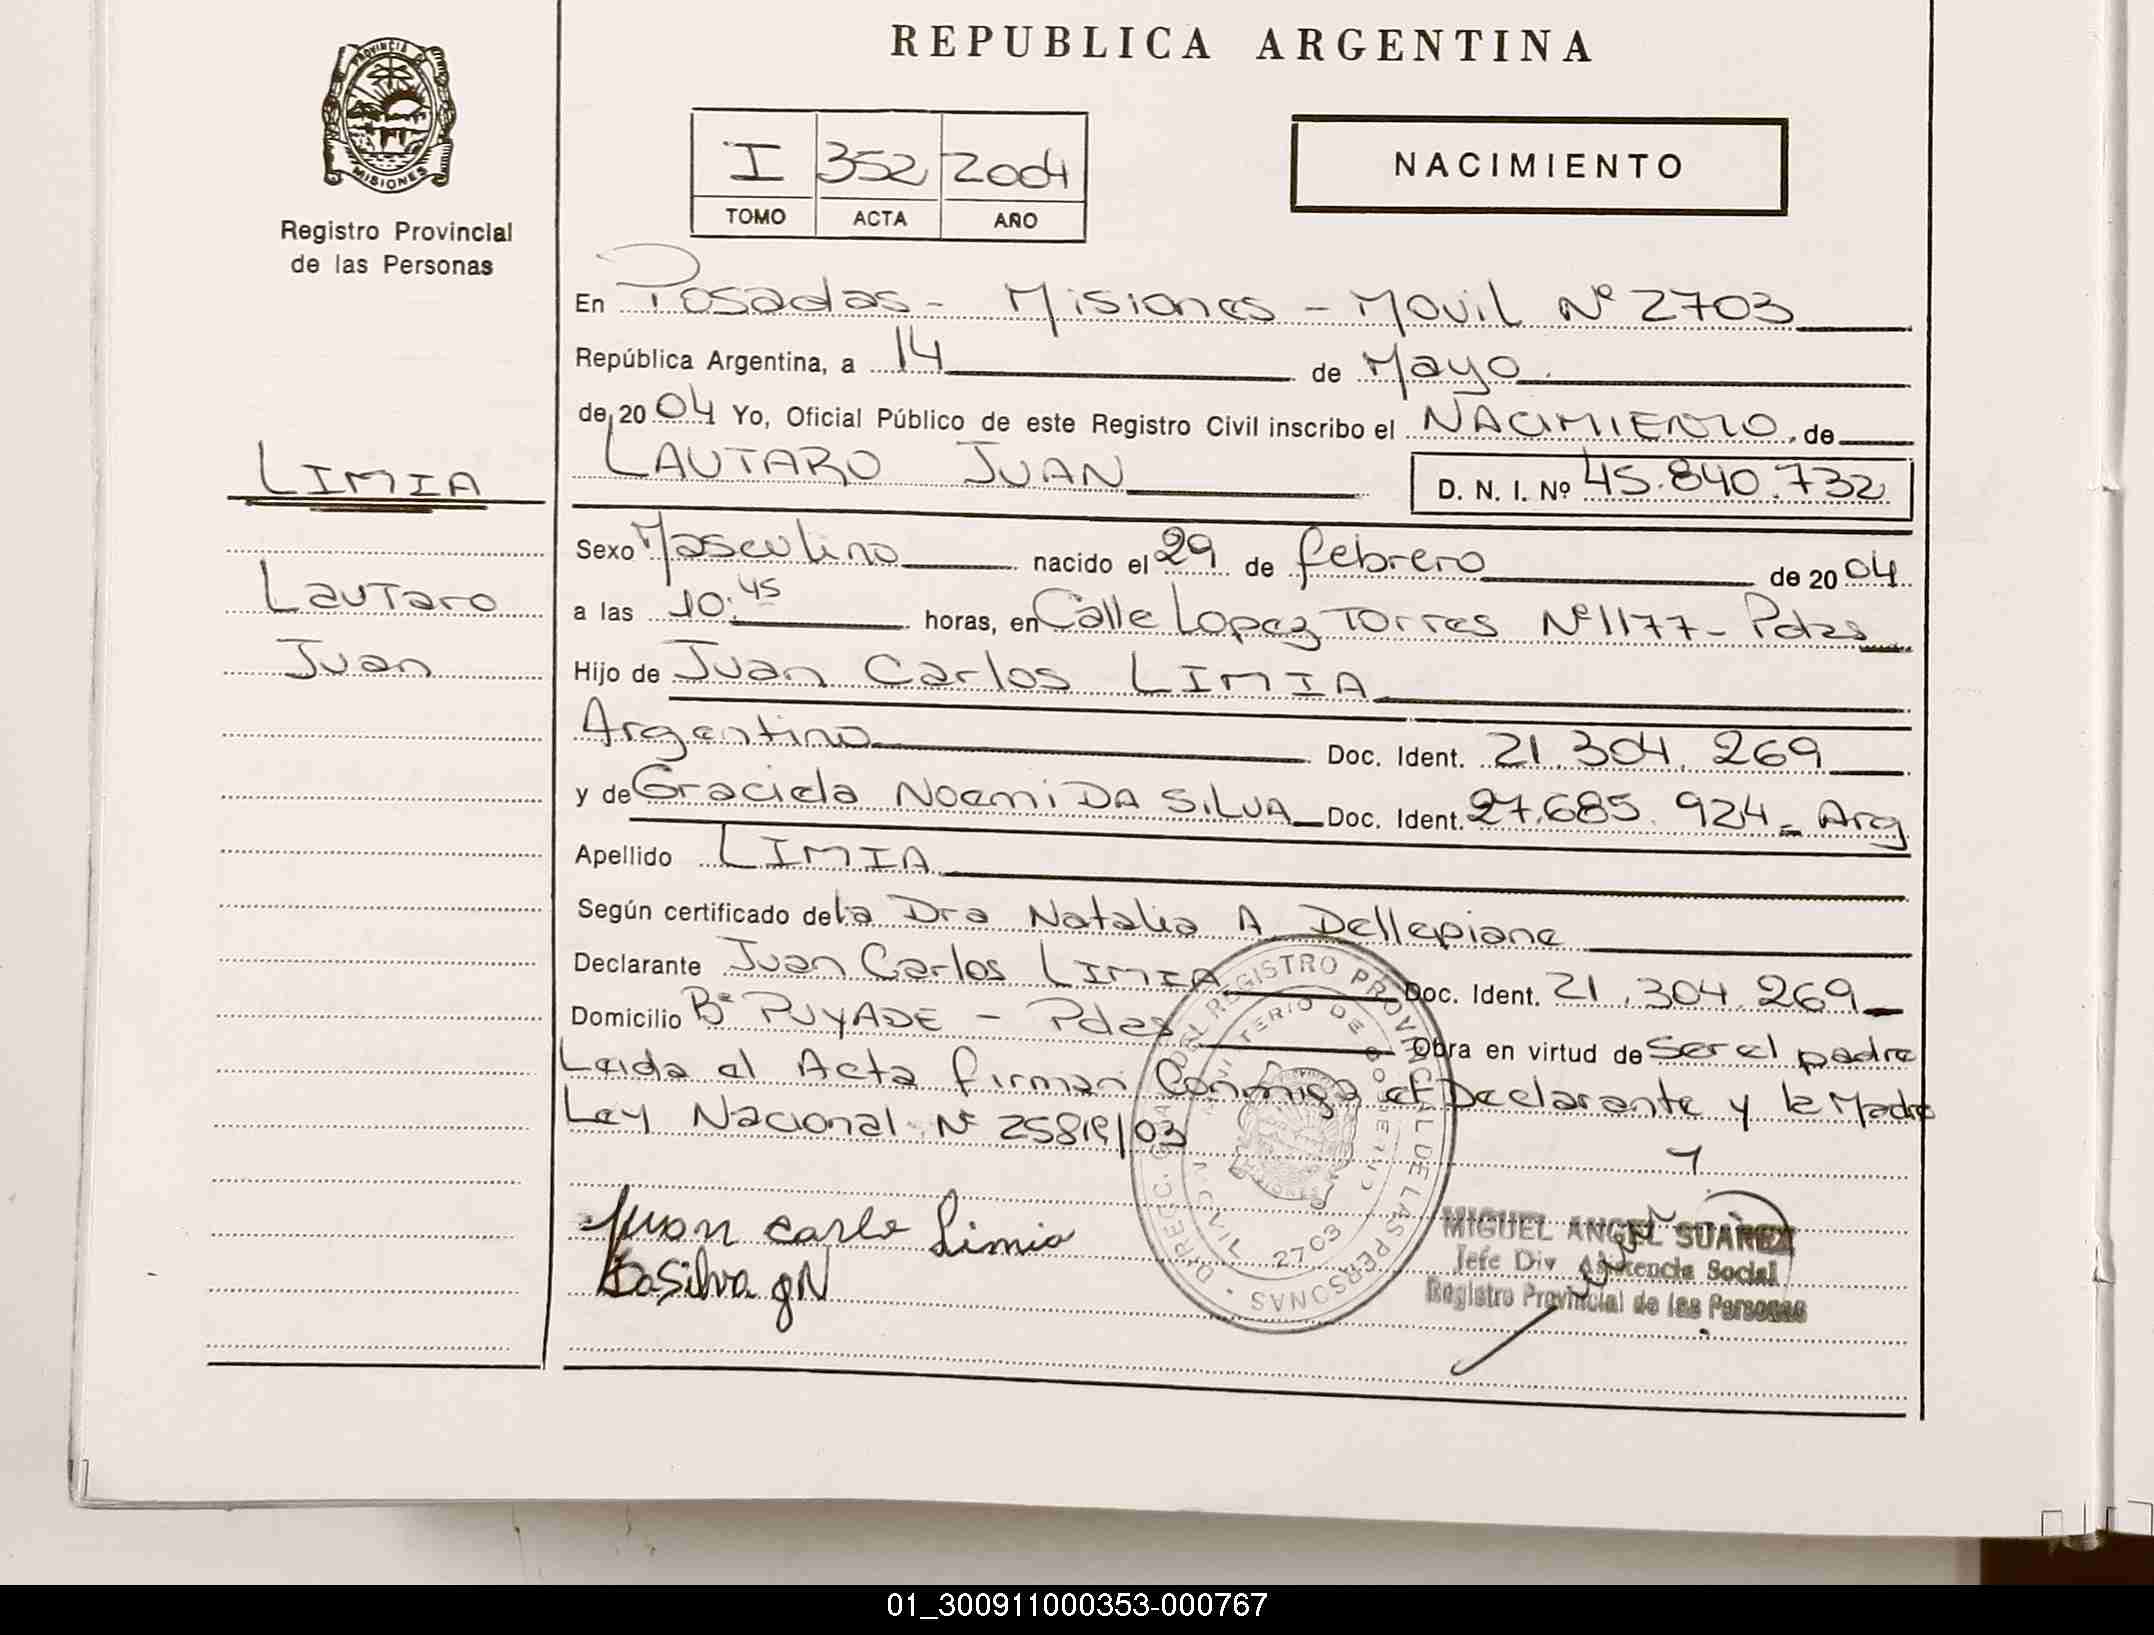 REPUBLICA ARGENTINA
PROVINCIA DE
MISIONES
Registro Provincial
de las Personas
I 352 2004
TOMO ACTA AÑO
NACIMIENTO
LIMIA
Lautaro
Juan
En Posadas - Misiones - Movil Nº 2703
República Argentina, a 14 de Mayo
de 2004 Yo, Oficial Público de este Registro Civil inscribo el NACIMIENTO, de
LAUTARO JUAN D. N. I. Nº 45.840.732
Sexo Masculino nacido el 29 de febrero de 2004
a las 10:45 horas, en Calle Lopez Torres Nº 1177 - Pdas
Hijo de Juan Carlos LIMIA
Argentino Doc. Ident. 21.304.269
y de Graciela Noemi DA SILVA Doc. Ident. 27.685.924 - Arg
Apellido LIMIA
Según certificado de la Dra Natalia A Dellepiane
Declarante Juan Carlos LIMIA Doc. Ident. 21.304.269
Domicilio Bº PUYADE - Pdas Obra en virtud de Ser el padre
Leida el Acta firman Conmigo el Declarante y la Madre
Ley Nacional Nº 25819/03
Juan Carlo Limia
Dasilva gN
DIREC. GRAL. DEL REGISTRO PROVINCIAL DE LAS PERSONAS
MINISTERIO DE GOBIERNO
MOVIL 2703
MIGUEL ANGEL SUAREZ
Jefe Div Asistencia Social
Registro Provincial de las Personas
01_300911000353-000767